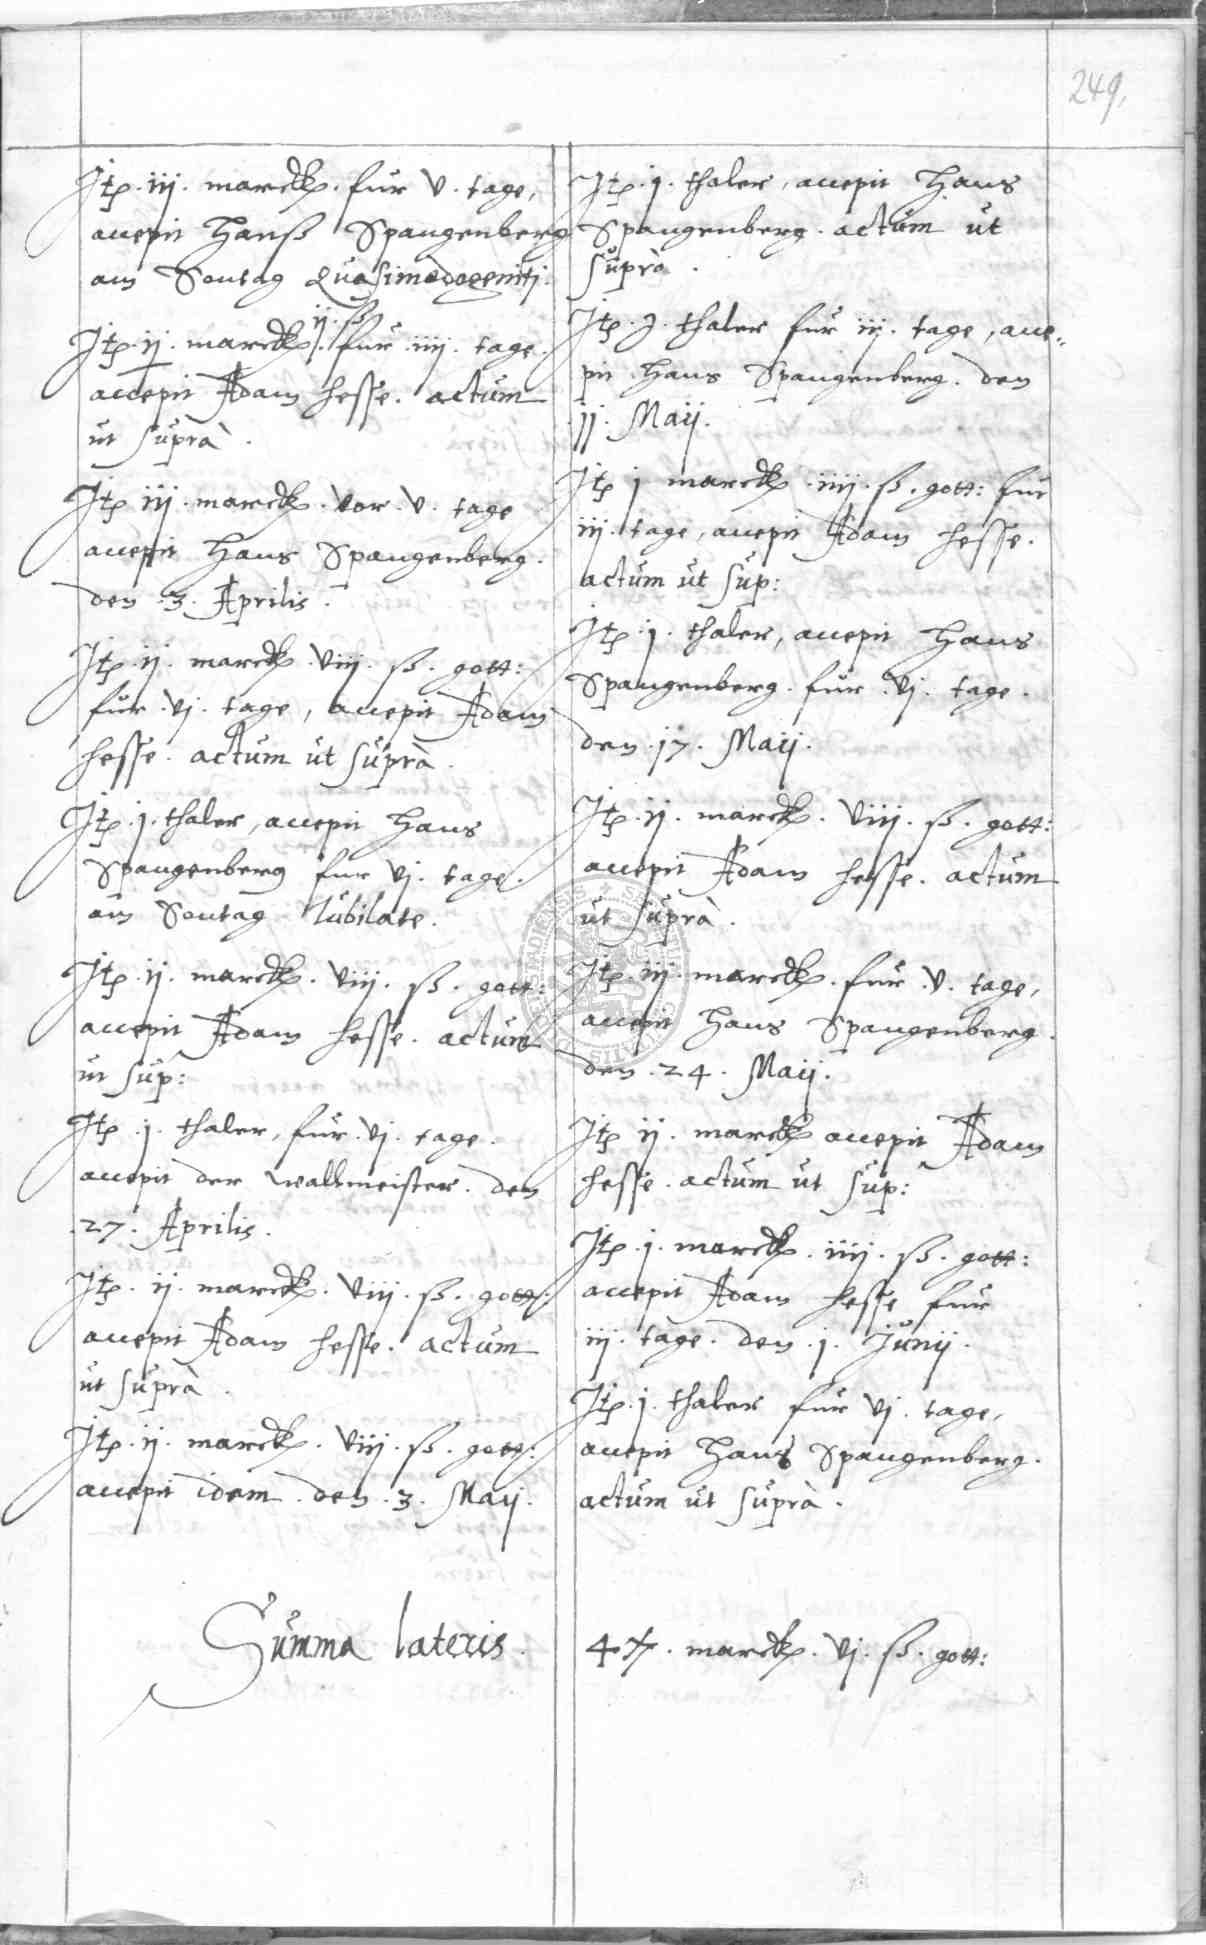 249.
Itp. iij. marck. für v. tage,
accepit Hanß Spangenberg
am Sontag Quasimodogeniti.
ij. ß
Itp. ij. marck. für iiij. tage.
accepit Adam Hesse. actum
ut suprà.
Itp iij. marck. vor. v. tage
accepit Hans Spangenberg.
den .3. Aprilis.
Itp. ij. marck. viij. ß. gott:
für .vj. tage, accepit Adam
Hesse. actum ut suprà.
Itp. j. thaler, accepit Hans
Spangenberg für vj. tage.
am Sontag Iubilate.
Itp. ij. marck. viij. ß. gott:
accepit Adam Hesse. actum
ut sup:
Itp .j. thaler, für .vj. tage.
accepit der wallmeister. den
.27. Aprilis.
Itp. ij. marck. viij. ß. gott:
accepit Adam Hesse. actum
ut suprà.
Itp. ij. marck. viij. ß. gott:
accepit idem. den .3. Maij.
Itp. j. thaler, accepit Hans
Spangenberg. actum ut
suprà.
Itp. j. thaler für iij. tage, acce„
pit Hans Spangenberg. den
.jj. Maij.
Itp j marck .iiij. ß. gott: für
iij. tage, accepit Adam Hesse.
actum ut sup:
Itp .j. thaler, accepit Hans
Spangenberg. für .vj. tage.
den .j7. Maij.
Itp. ij. marck. viij. ß. gott:
accepit Adam Hesse. actum
ut suprà.
Itp. iij. marck. für .v. tage,
accepit Hans Spangenberg.
den .24. Maij.
Itp ij. marck accepit Adam
Hesse. actum ut sup:
Itp. j. marck. iiij. ß. gott:
accepit Adam Hesse für
iij. tage. den .j. Junij.
Itp. j. thaler für vj. tage,
accepit Hans Spangenberg.
actum ut suprà.
Summa lateris. 47. marck. vj. ß. gott: